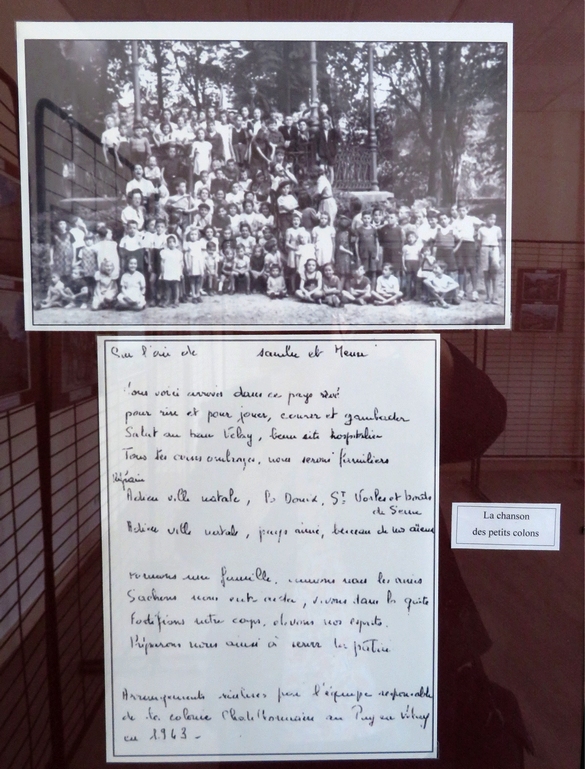 Sur l'air de Sambre et Meuse
Nous voici arrivés dans ce pays rêvé
pour rire et pour jouer, courir et gambader
Salut au beau Velay, beau site hospitalier
Tous tes coins ombragés, nous seront familiers
Refrain
Adieu ville natale, la Douix, St Vorles et bords
de Seine
Adieu ville natale, pays aimé, berceau de nos aïeux
Formons une famille, unissons nous les amis
Sachons nous entr'aider, vivons dans la gaîté
Fortifions notre corps, élevons nos esprits.
Préparons nous ainsi à servir la patrie
Arrangements réalisés par l'équipe responsable
de la colonie Chatillonnaise au Puy en Velay
en 1943 -
La chanson
des petits colons